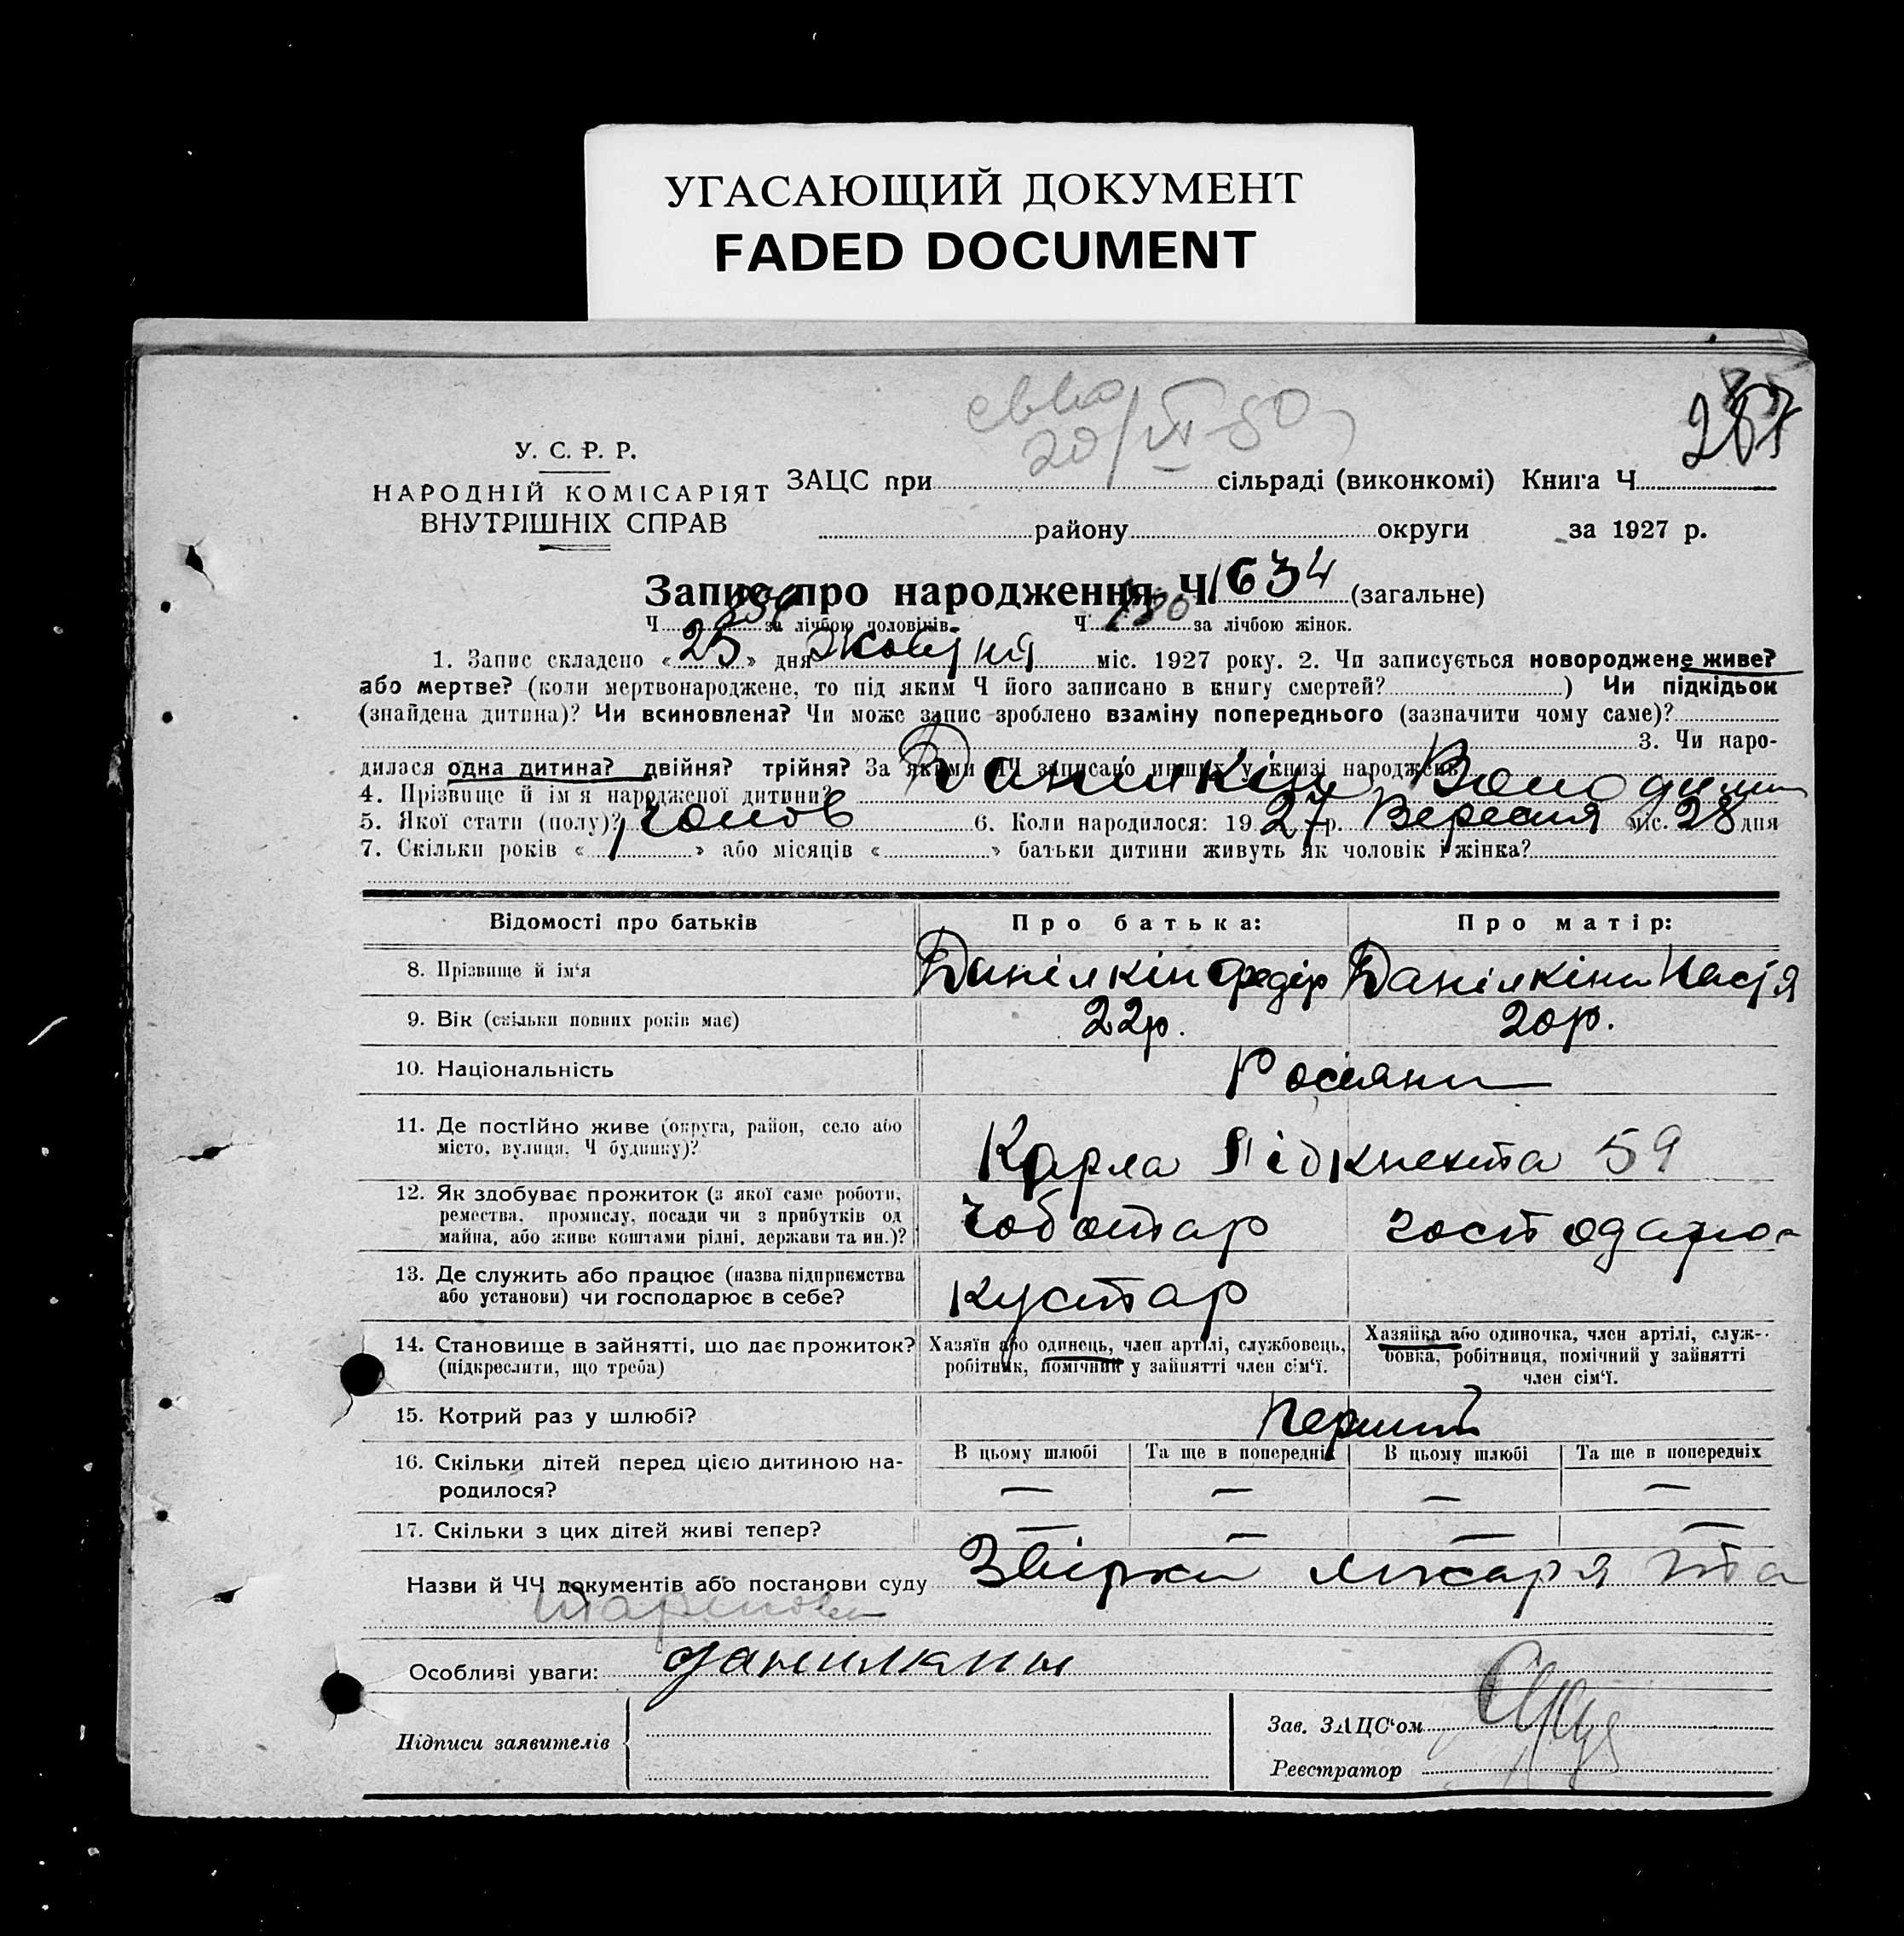 УГАСАЮЩИЙ ДОКУМЕНТ
FADED DOCUMENT
287
У. С. Р. Р.
НАРОДНІЙ КОМІСАРІЯТ
ВНУТРІШНІХ СПРАВ
ЗАЦС при сільраді (виконкомі) Книга Ч.
району округи за 1927 р.
Запис про народження Ч. 1634 (загальне)
Ч. за лічбою чоловіків. Ч. за лічбою жінок.
1. Запис складено « 25 » дня Жовтня міс. 1927 року. 2. Чи записується новороджене живе?
або мертве? (коли мертвонароджене, то під яким Ч його записано в книгу смертей? ) Чи підкідьок
(знайдена дитина)? Чи всиновлена? Чи може запис зроблено взаміну попереднього (зазначити чому саме)?
3. Чи наро-
дилася одна дитина? двійня? трійня? За якими ЧЧ записано инших у книзі народжень
4. Прізвище й ім'я народженої дитини? Данилкін Володимир
5. Якої стати (полу)? чолов 6. Коли народилося: 1927 р. Вересня міс. 28 дня
7. Скільки років « » або місяців « » батьки дитини живуть як чоловік і жінка?
Відомості про батьків Про батька: Про матір:
8. Прізвище й ім'я Данілкін Федір Данілкіна Настя
9. Вік (скільки повних років має) 22р. 20р.
10. Національність Росіяни
11. Де постійно живе (округа, район, село або
місто, вулиця, Ч будинку)? Карла Лібкнехта 59
12. Як здобуває прожиток (з якої саме роботи,
ремества, промислу, посади чи з прибутків од
майна, або живе коштами рідні, держави та ин.)? Чоботар господарює
13. Де служить або працює (назва підприємства
або установи) чи господарює в себе? Кустар
14. Становище в зайнятті, що дає прожиток?
(підкреслити, що треба)
Хазяїн або одинець, член артілі, службовець,
робітник, помічний у зайнятті член сім'ї.
Хазяйка або одиночка, член артілі, служ-
бовка, робітниця, помічний у зайнятті
член сім'ї.
15. Котрий раз у шлюбі? Перший
16. Скільки дітей перед цією дитиною на-
родилося?
В цьому шлюбі Та ще в попередніх В цьому шлюбі Та ще в попередніх
— — — —
17. Скільки з цих дітей живі тепер? — — — —
Назви й ЧЧ документів або постанови суду лікаря та
Особливі уваги: Данилкины
Підписи заявителів
Зав. ЗАЦС'ом
Реєстратор